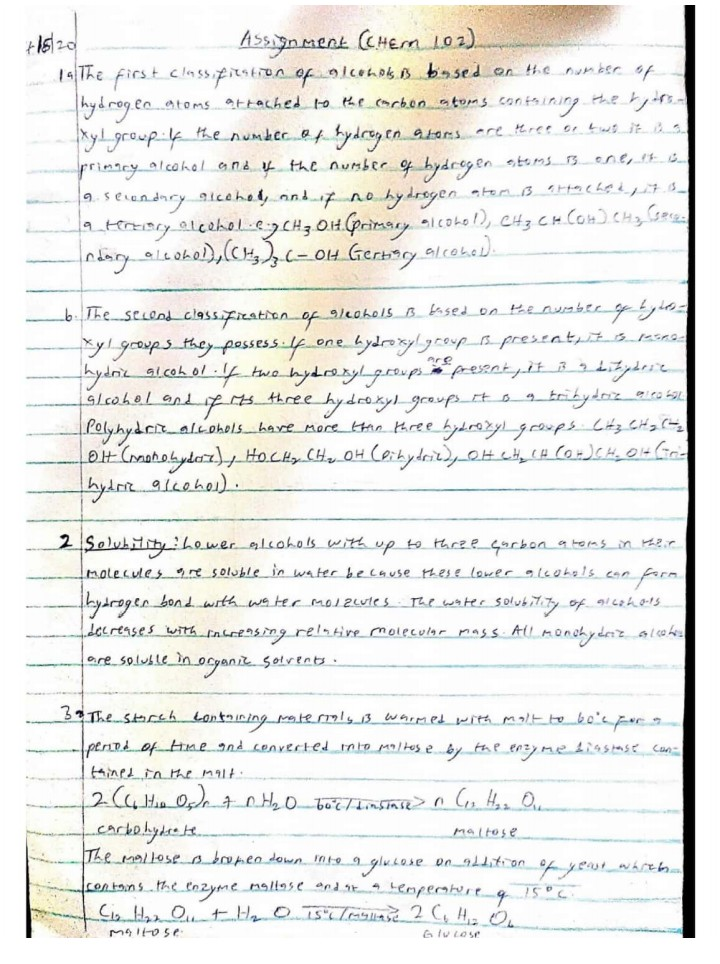 Assignment (CHEM 102)
1a The first classification of alcohols is based on the number of
hydrogen atoms attached to the carbon atoms containing the hydro-
xyl group. If the number of hydrogen atoms are three or two it is a
primary alcohol and if the number of hydrogen atoms is one, it is
a secondary alcohol, and if no hydrogen atom is attached, it is
a tertiary alcohol. e.g CH3 OH (primary alcohol), CH3 CH (OH) CH3 (seco-
ndary alcohol), (CH3)3 C - OH (tertiary alcohol).
b. The second classification of alcohols is based on the number of hydro-
xyl groups they possess. If one hydroxyl group is present, it is mono-
hydric alcohol. If two hydroxyl groups are present, it is a dihydric
alcohol and if its three hydroxyl groups it is a trihydric alcohol
Polyhydric alcohols have more than three hydroxyl groups. CH3 CH2 CH2
OH (monohydric), HOCH2 CH2 OH (Dihydric), OH CH2 CH (OH) CH2 OH (Tri-
hydric alcohol).
2 Solubility: Lower alcohols with up to three carbon atoms in their
molecules are soluble in water because these lower alcohols can form
hydrogen bond with water molecules. The water solubility of alcohols
decreases with increasing relative molecular mass. All monohydric alcohol
are soluble in organic solvents.
3a The starch containing materials is warmed with malt to 60°c for a
period of time and converted into maltose by the enzyme diastase con-
tained in the malt.
2 (C6 H10 O5)n + nH2O 60°c/diastase> n C12 H22 O11
carbohydrate maltose
The maltose is broken down into a glucose on addition of yeast which
contains the enzyme maltase and at a temperature of 15°c.
C12 H22 O11 + H2 O 15°c/maltase 2 C6 H12 O6
maltose Glucose